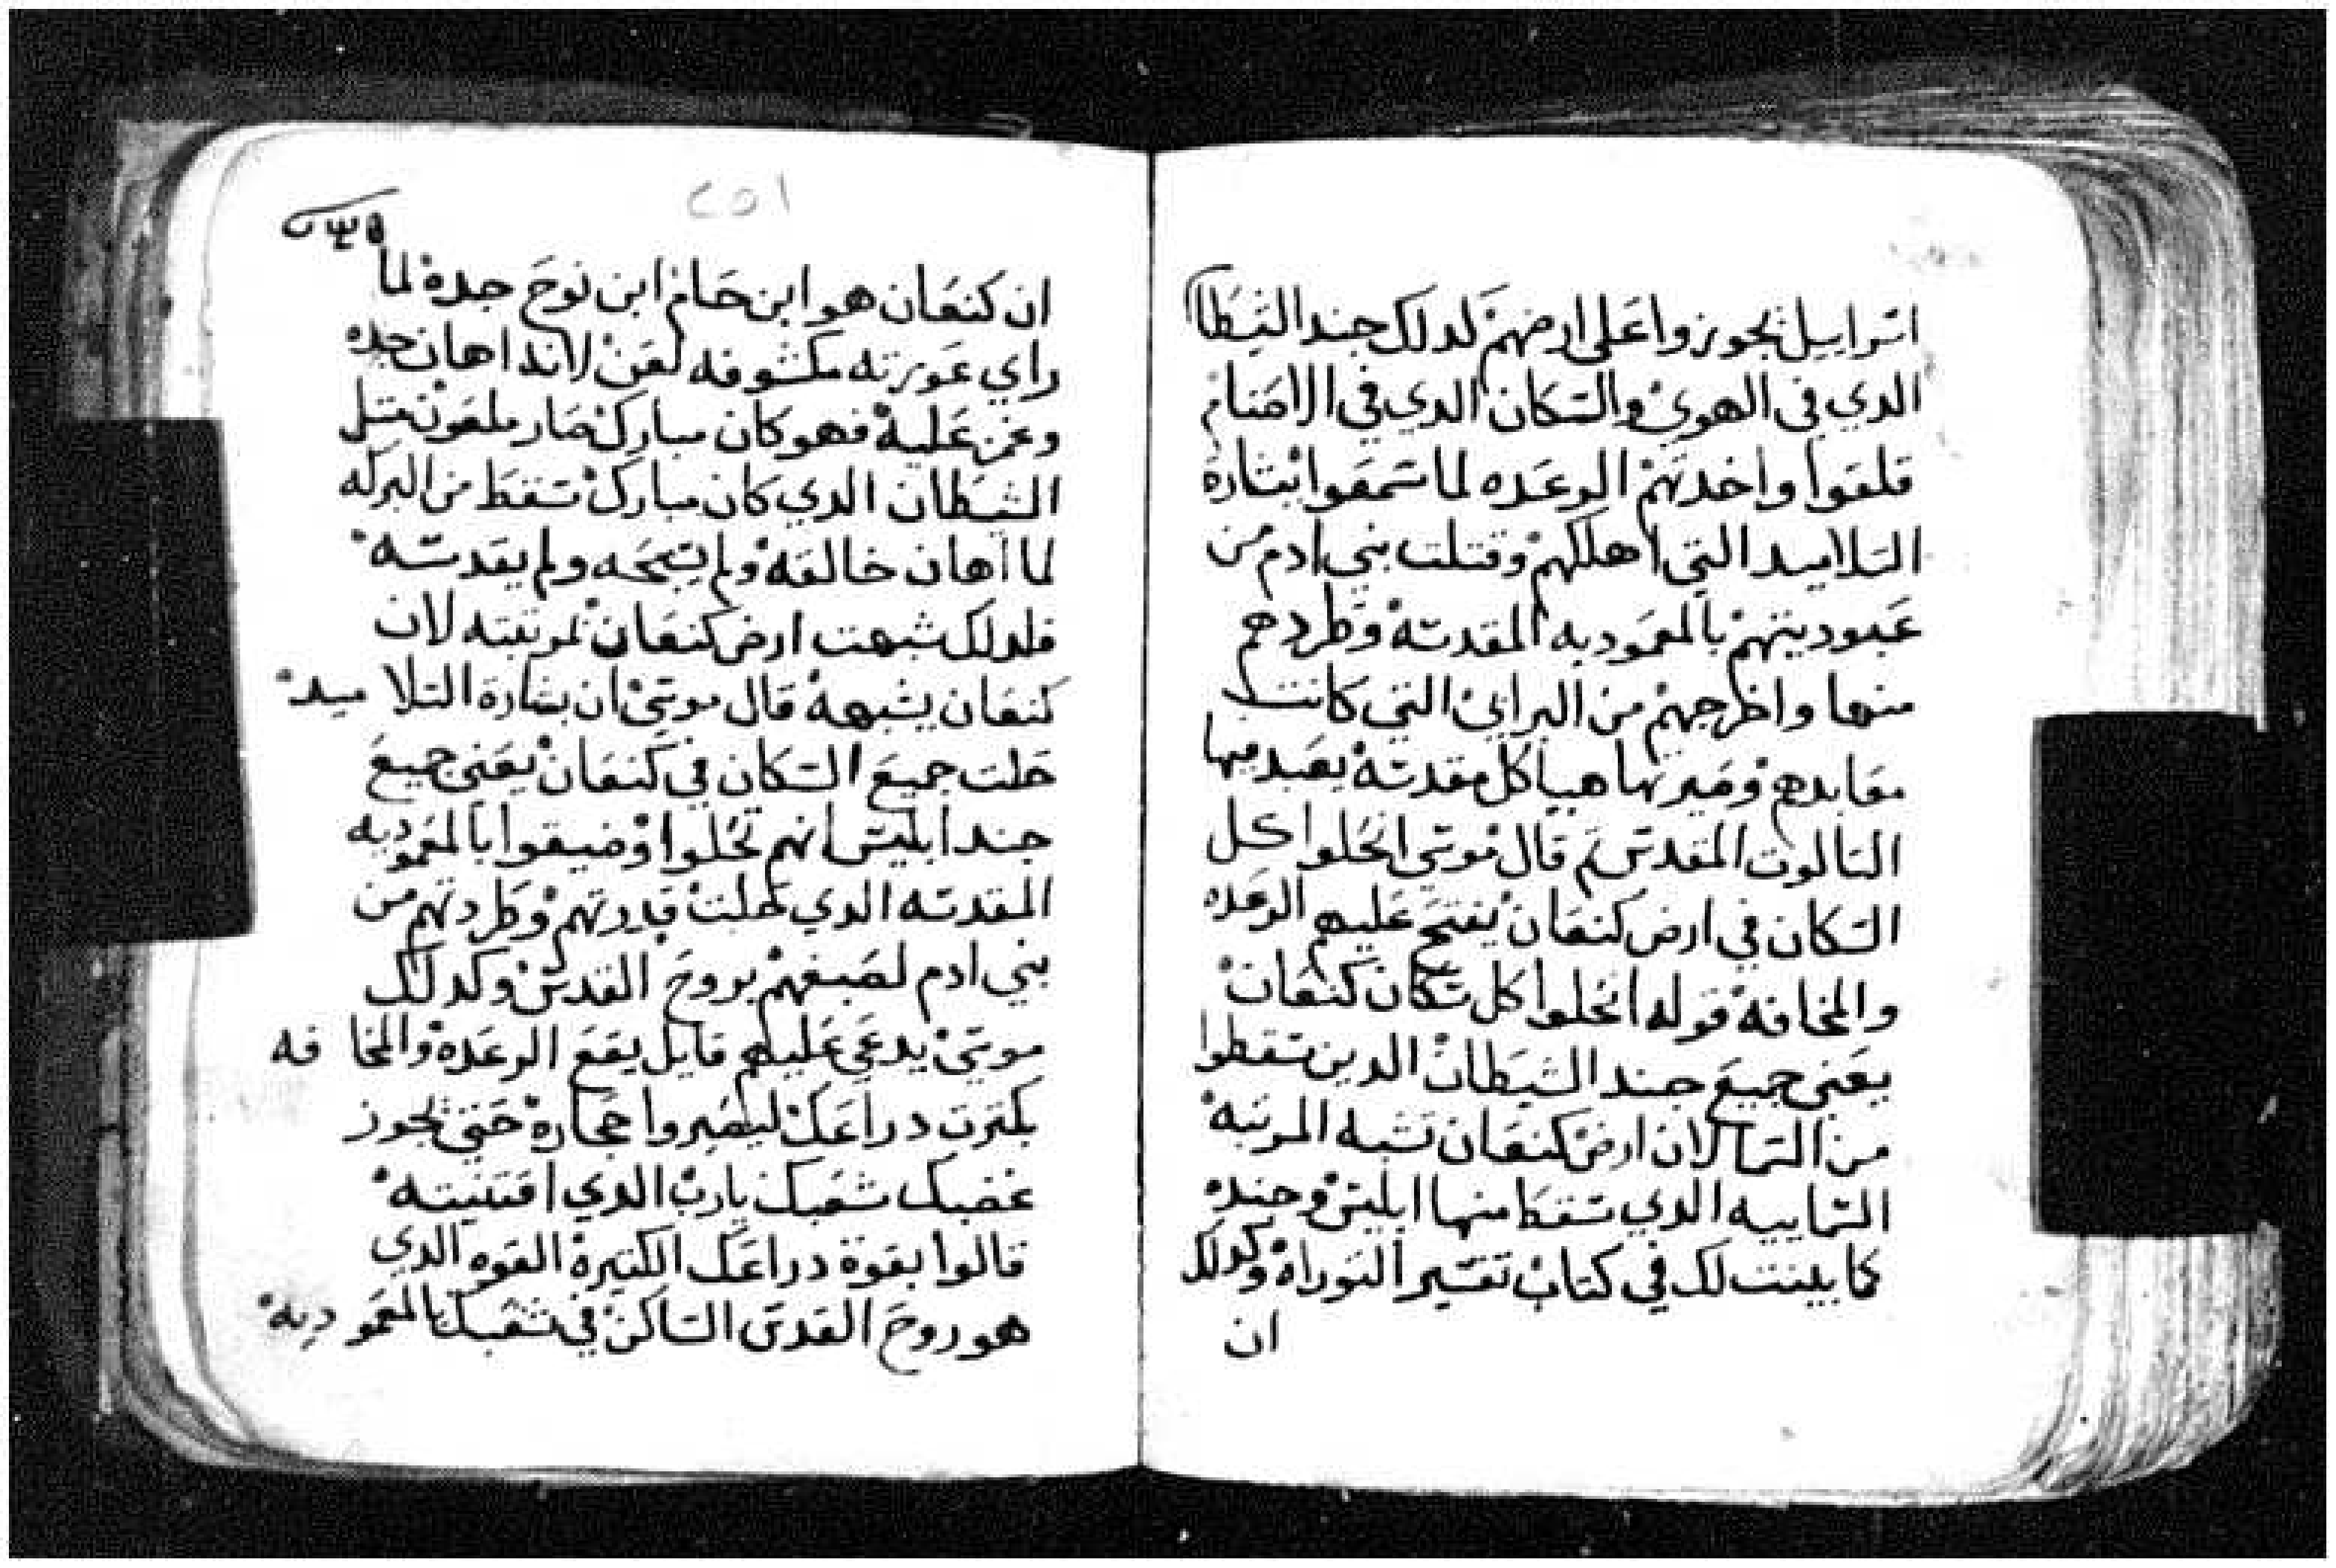 اسراييل يجوزوا على ارضهم لدلك جند الشيطان
الدي في الهوي والسكان الدي في الاصنام
قلقوا واخدتهم الرعده لما سمعوا بشارة
التلاميد التي اهلكهم وقتلت بني ادم من
عبوديتهم بالمعموديه المقدسه وطردهم
منها واخرجهم من البرابي التي كانت
معابدهم وصيرتها هياكل مقدسه يعبد فيها
التالوت المقدس ثم قال موسي انحلوا كل
السكان في ارض كنعان يفتح عليهم الرعده
والمخافه قوله انحلوا كل سكان كنعان
يعني جميع جند الشيطان الدين سقطوا
من السما لان ارض كنعان تشبه المرتبه
السماييه الدي سقط منها ابليس وجنده
كما بينت لك في كتاب تفسير التوراه وكدلك
ان
٢٥١
ان كنعان هو ابن حام ابن نوح جده لما
راي عورته مكشوفه لعن لانه اهان جده
وغمز عليه فهو كان مبارك صار ملعون متل
الشيطان الدي كان مبارك سقط من البركه
لما اهان خالقه ولم يسبحه ولم يقدسه
فلدلك شبهت ارض كنعان لمرتبته لان
كنعان يشبهه قال موسي ان بشارة التلاميد
حلت جميع السكان في كنعان يعني جميع
جند ابليس انهم تحلوا وضيقوا بالمعموديه
المقدسه الدي حلت قدرتهم وطردتهم من
بني ادم لصبغهم بروح القدس وكدلك
موسي يدعي عليهم قايل يقع الرعده والمخافه
بكترت دراعك ليصيروا حجاره حتي يجوز
غضبك شعبك يارب الدي اقتنيته
قالوا بقوة دراعك الكتيرة القوه الدي
هو روح القدس الساكن في شعبك بالمعموديه